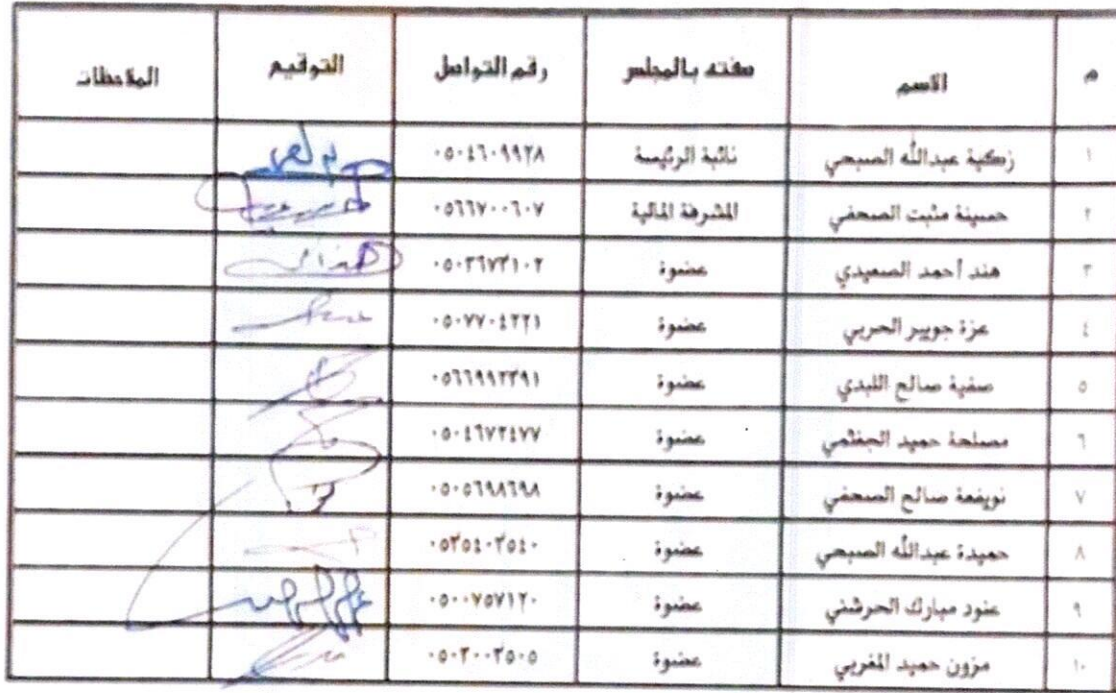 م الاسم صفته بالمجلس رقم التواصل التوقيع الملاحظات
١ زكية عبدالله الصبحي نائبة الرئيسة ٠٥٠٤٦٠٩٩٢٨
٢ حسينة مثبت الصحفي المشرفة المالية ٠٥٦٦٧٠٠٦٠٧
٣ هند أحمد الصعيدي عضوة ٠٥٠٣٦٧٣١٠٢
٤ عزة جويبر الحربي عضوة ٠٥٠٧٧٠٤٢٢١
٥ صفية صالح اللبدي عضوة
٦ مصلحة حميد الجغثمي عضوة
٧ نويفعة صالح الصحفي عضوة ٠٥٠٥٦٩٨٦٩٨
٨ حميدة عبدالله الصبحي عضوة
٩ عنود مبارك الحرشني عضوة ٠٥٠٠٧٥٧١٢٠
١٠ مزون حميد المغربي عضوة